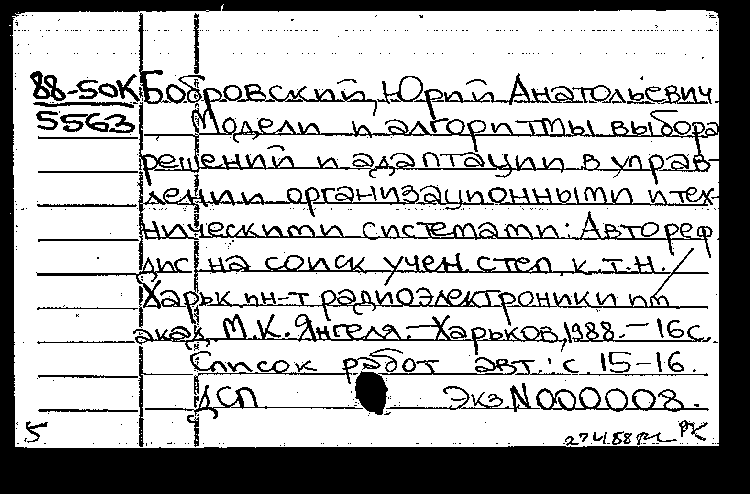 88-50К Бобровский, Юрий Анатольевич
5563 Модели и алгоритмы выбора
решений и адаптации в управ-
лении организационными и тех-
ническими системами: Автореф
дис на соиск учен. степ. к.т.н. /
Харьк ин-т радиоэлектроники им
акад. М.К. Янгеля. – Харьков, 1988. – 16 с.
Список работ авт.: с 15-16.
ДСП Экз. N000008.
5 РК